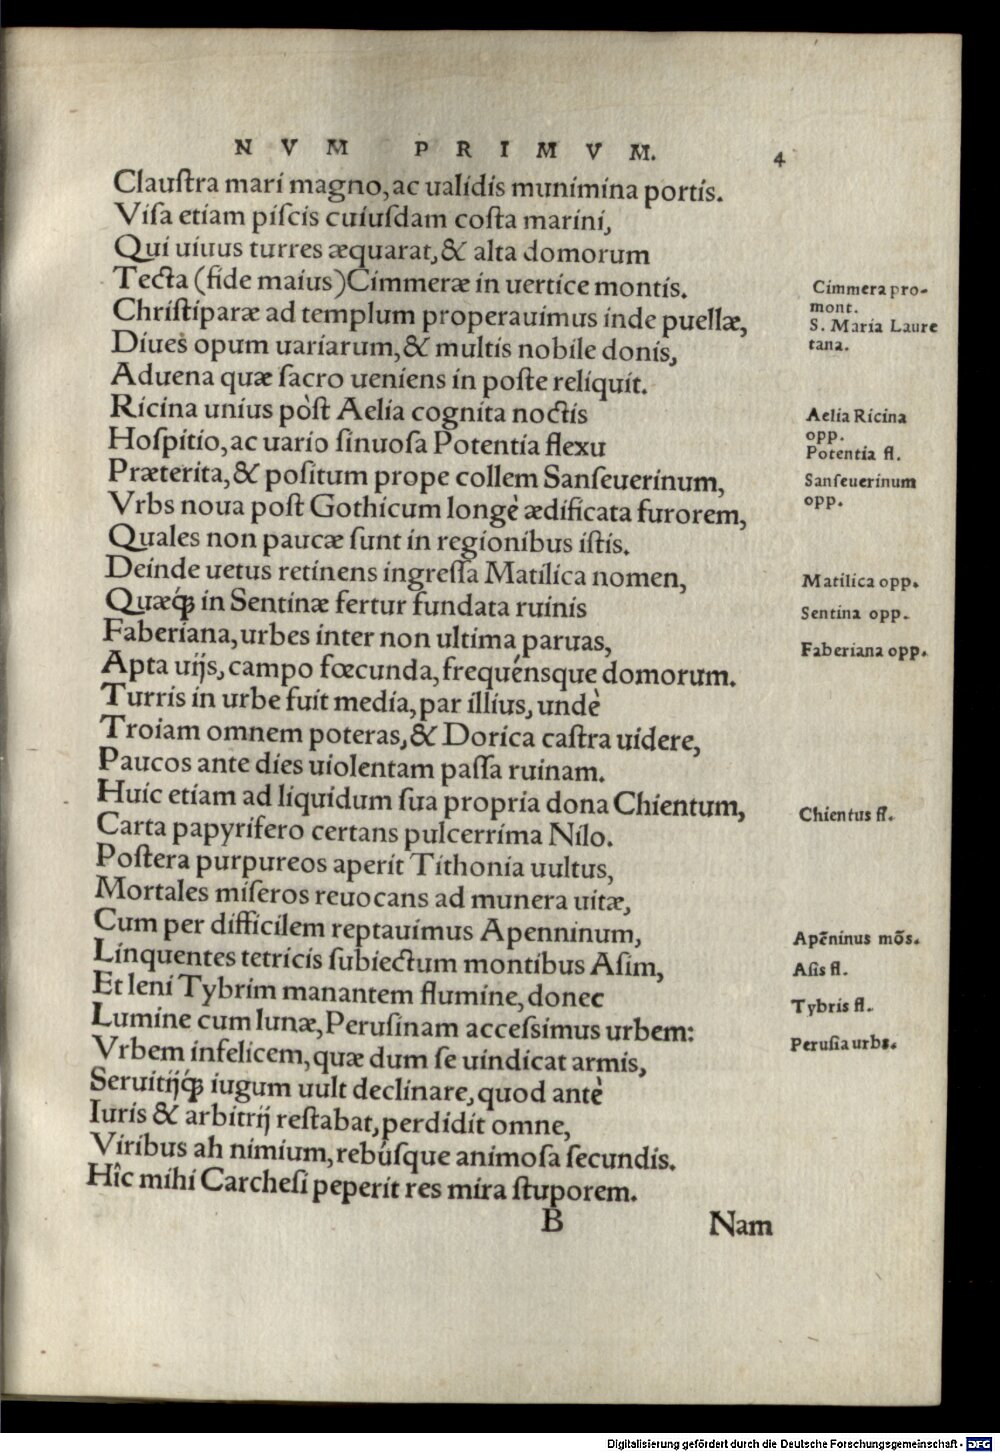 NVM PRIMVM. 4
Clauſtra mari magno, ac ualidis munimina portis.
Viſa etiam piſcis cuiuſdam coſta marini,
Qui uiuus turres æquarat, & alta domorum
Tecta (fide maius) Cimmeræ in uertice montis.
Cimmera pro-
mont.
Chriſtiparæ ad templum properauimus inde puellæ,
S. Maria Laure
tana.
Diues opum uariarum, & multis nobile donis,
Aduena quæ ſacro ueniens in poſte reliquit.
Ricina unius pòſt Aelia cognita noctis
Aelia Ricina
opp.
Hoſpitio, ac uario ſinuoſa Potentia flexu
Potentia fl.
Præterita, & poſitum prope collem Sanſeuerinum,
Sanſeuerinum
opp.
Vrbs noua poſt Gothicum longè ædificata furorem,
Quales non paucæ ſunt in regionibus iſtis.
Deinde uetus retinens ingreſſa Matilica nomen,
Matilica opp.
Quæq́; in Sentinæ fertur fundata ruinis
Sentina opp.
Faberiana, urbes inter non ultima paruas,
Faberiana opp.
Apta uijs, campo fœcunda, frequénsque domorum.
Turris in urbe fuit media, par illius, undè
Troiam omnem poteras, & Dorica caſtra uidere,
Paucos ante dies uiolentam paſſa ruinam.
Huic etiam ad liquidum ſua propria dona Chientum,
Chientus fl.
Carta papyrifero certans pulcerrima Nilo.
Poſtera purpureos aperit Tithonia uultus,
Mortales miſeros reuocans ad munera uitæ,
Cum per difficilem reptauimus Apenninum,
Apēninus mōs.
Linquentes tetricis ſubiectum montibus Aſim,
Aſis fl.
Et leni Tybrim manantem flumine, donec
Tybris fl.
Lumine cum lunæ, Peruſinam acceſsimus urbem:
Peruſia urbs.
Vrbem infelicem, quæ dum ſe uindicat armis,
Seruitijq́; iugum uult declinare, quod antè
Iuris & arbitrij reſtabat, perdidit omne,
Viribus ah nimium, rebúſque animoſa ſecundis.
Hîc mihi Carcheſi peperit res mira ſtuporem.
B Nam
Digitalisierung gefördert durch die Deutsche Forschungsgemeinschaft - DFG